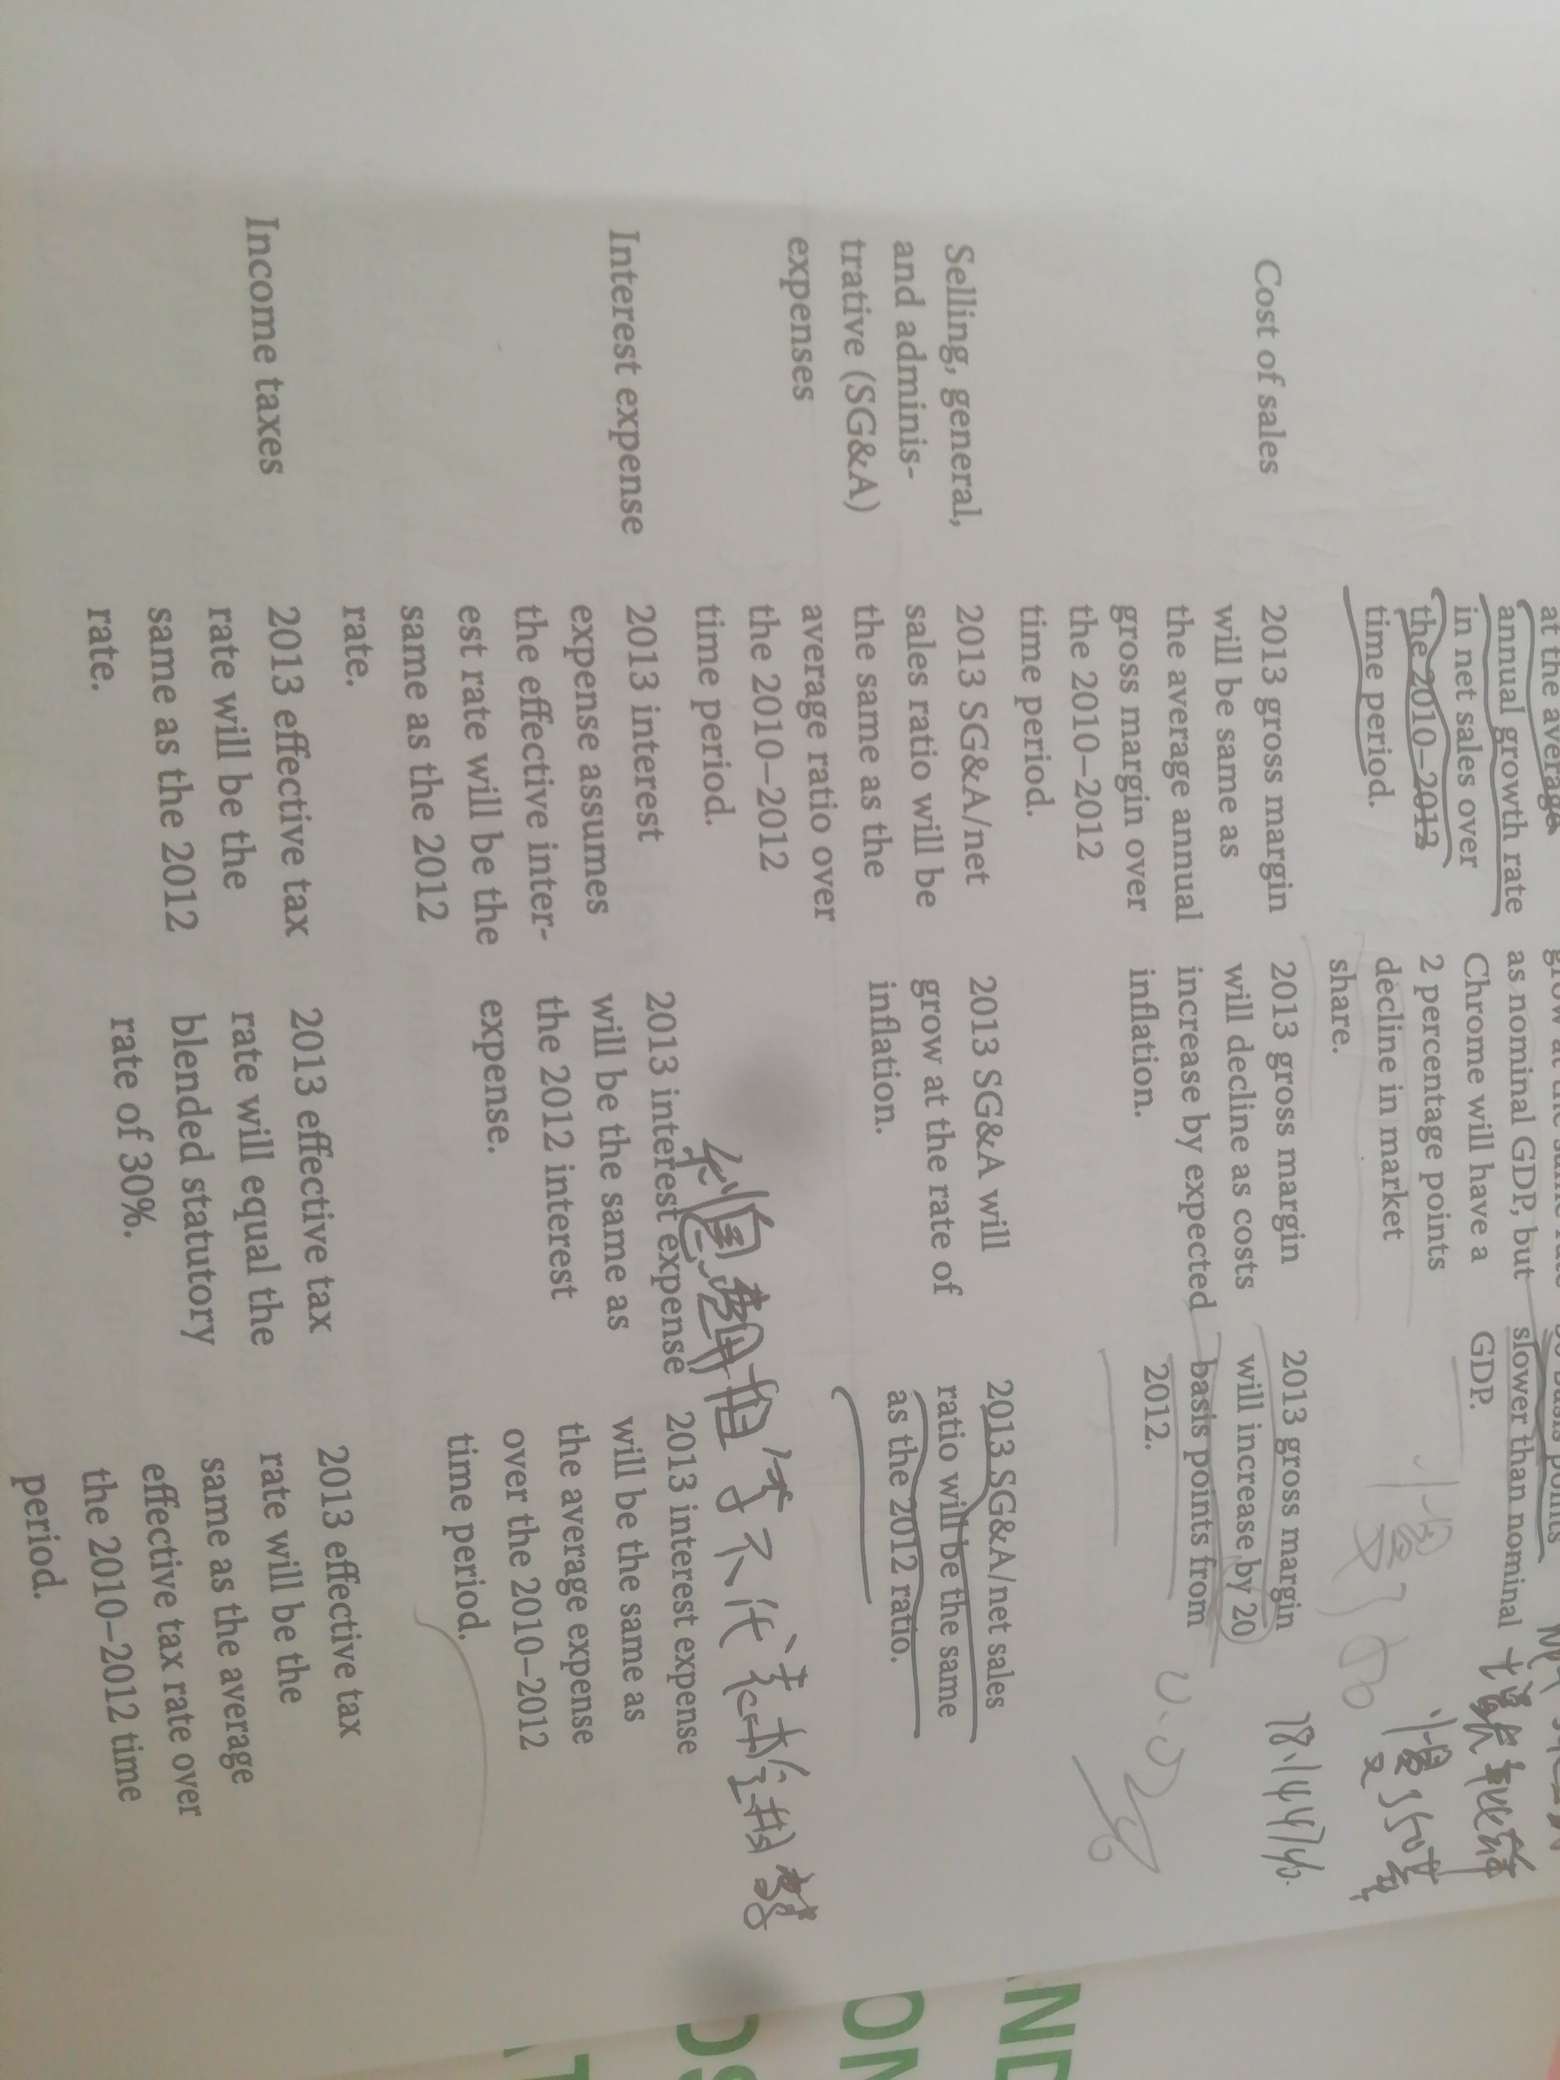 at the average
annual growth rate
in net sales over
the 2010–2012
time period.
as nominal GDP, but
Chrome will have a
2 percentage points
decline in market
share.
slower than nominal
GDP.
Cost of sales
2013 gross margin
will be same as
the average annual
gross margin over
the 2010–2012
time period.
2013 gross margin
will decline as costs
increase by expected
inflation.
2013 gross margin
will increase by 20
basis points from
2012.
Selling, general,
and adminis-
trative (SG&A)
expenses
2013 SG&A/net
sales ratio will be
the same as the
average ratio over
the 2010–2012
time period.
2013 SG&A will
grow at the rate of
inflation.
2013 SG&A/net sales
ratio will be the same
as the 2012 ratio.
Interest expense
2013 interest
expense assumes
the effective inter-
est rate will be the
same as the 2012
rate.
2013 interest expense
will be the same as
the 2012 interest
expense.
2013 interest expense
will be the same as
the average expense
over the 2010–2012
time period.
Income taxes
2013 effective tax
rate will be the
same as the 2012
rate.
2013 effective tax
rate will equal the
blended statutory
rate of 30%.
2013 effective tax
rate will be the
same as the average
effective tax rate over
the 2010–2012 time
period.